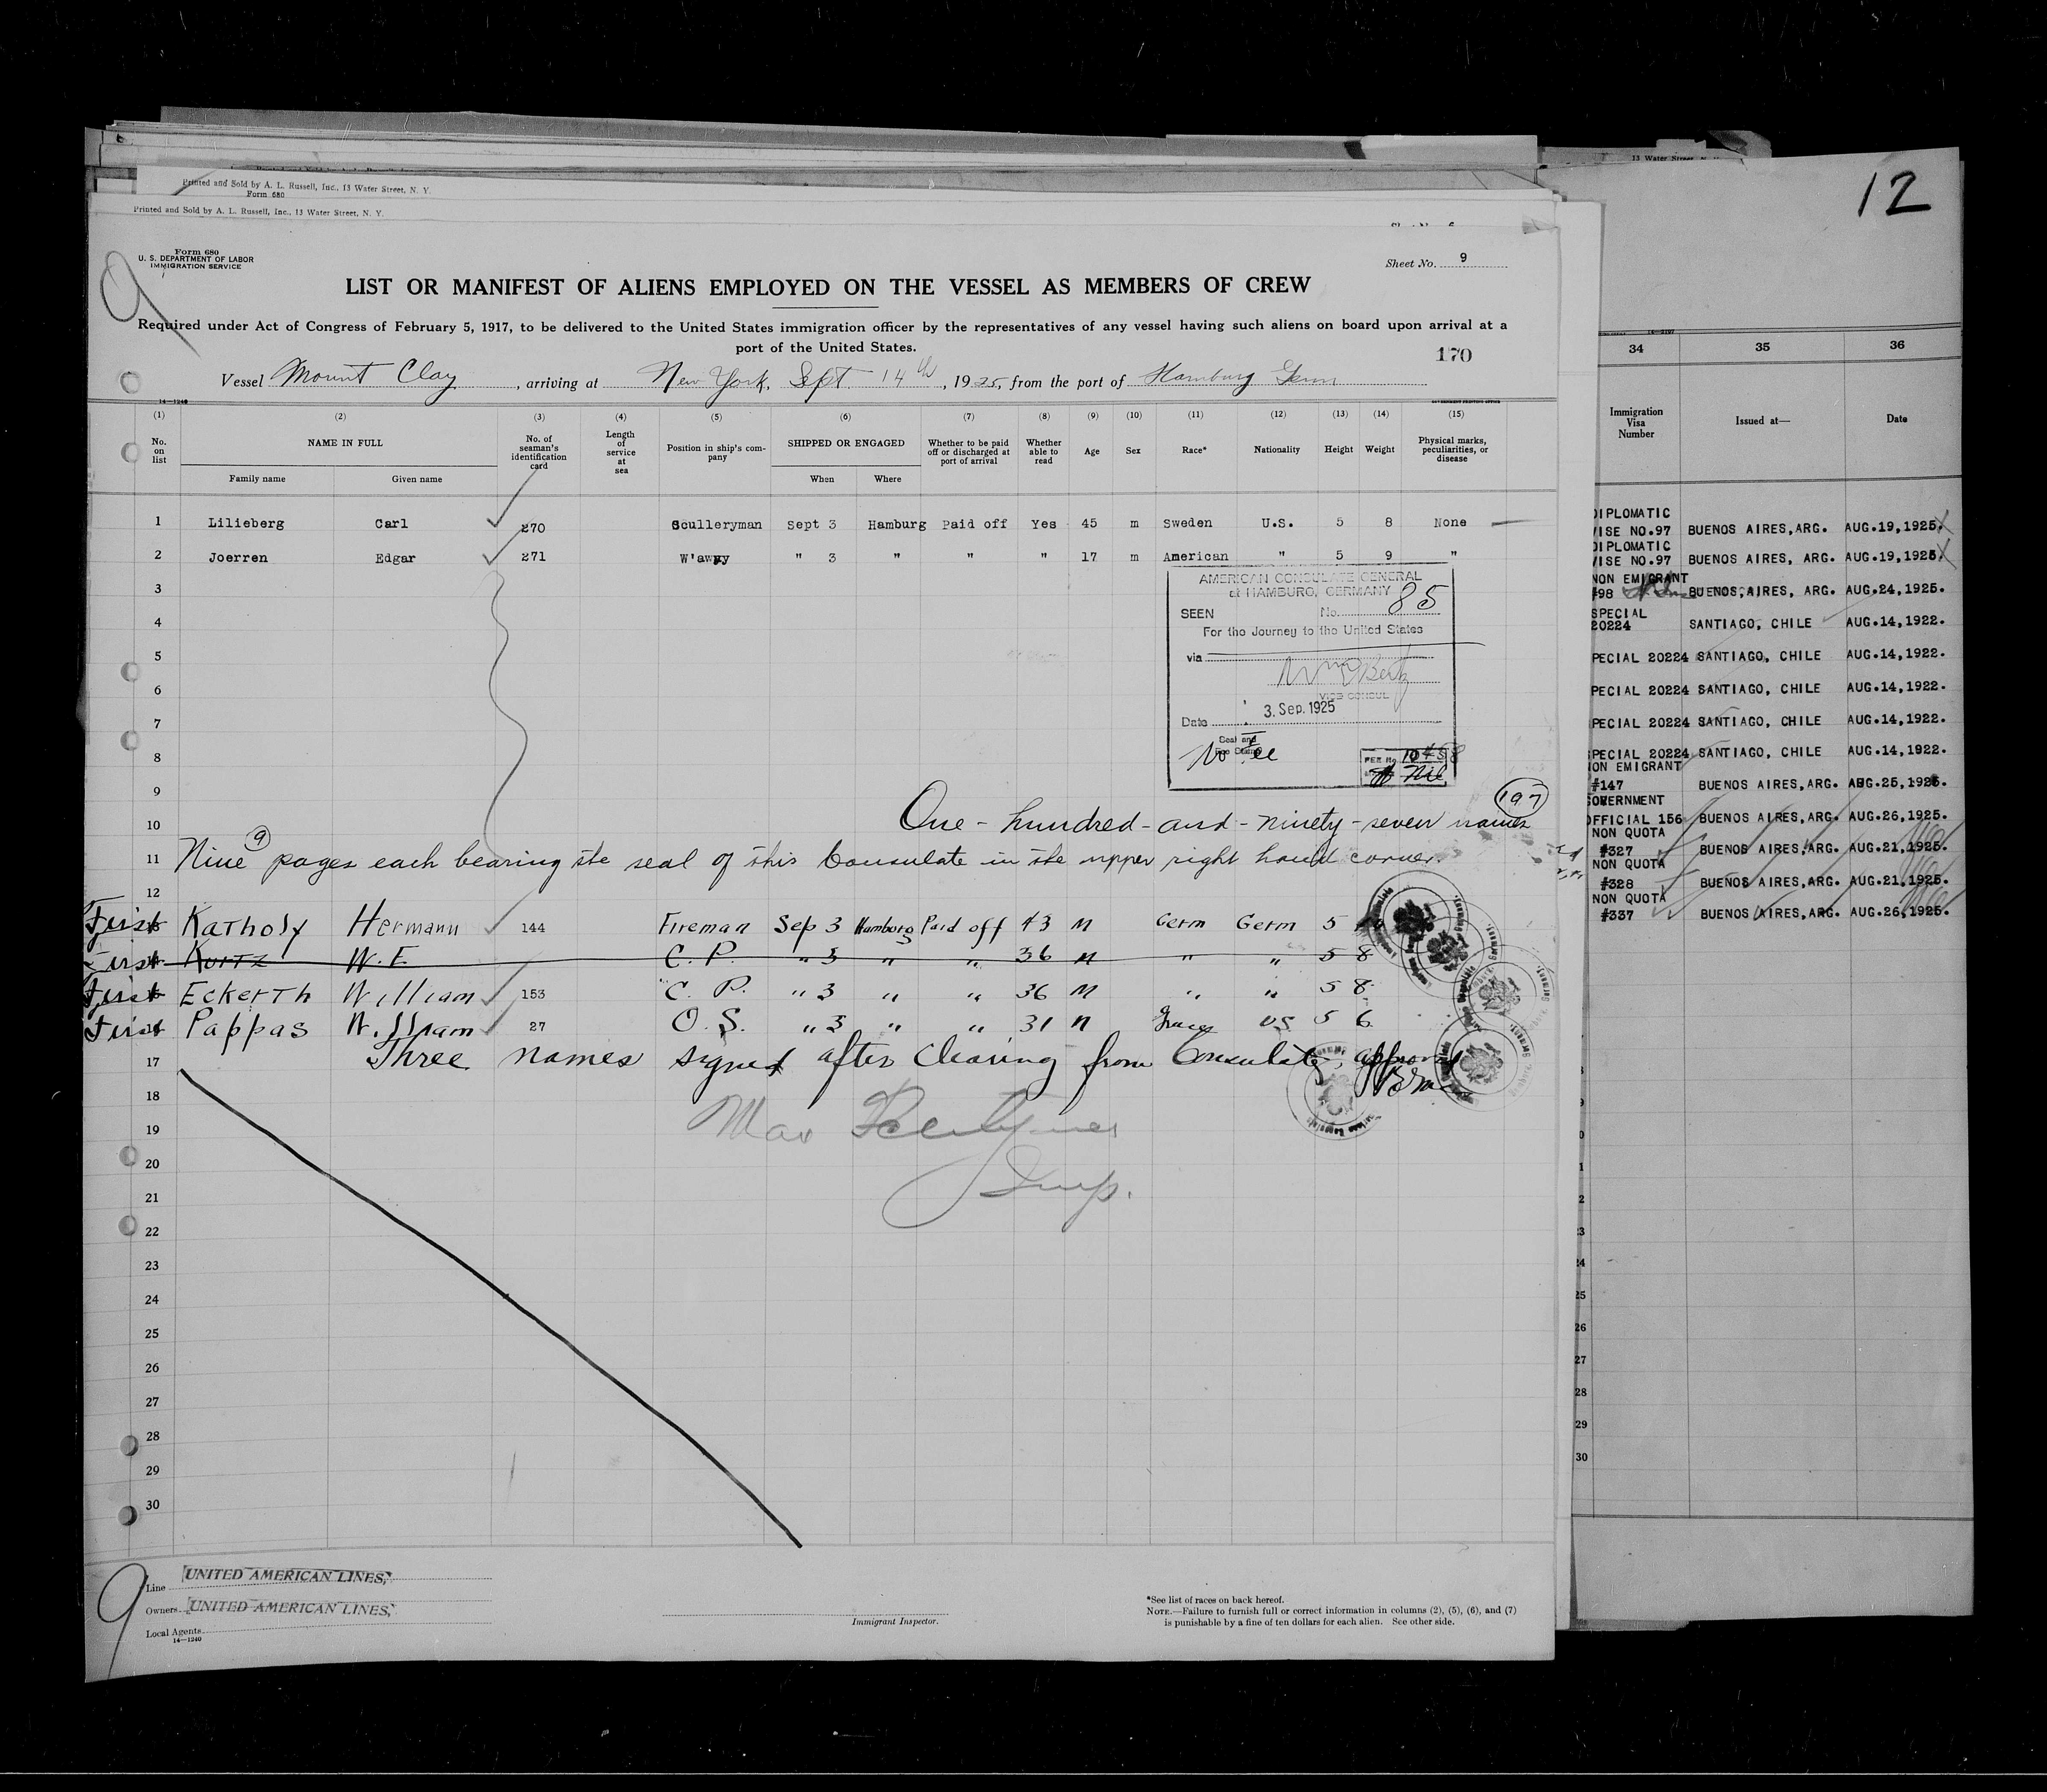 Printed and Sold by A. L. Russell, Inc., 13 Water Street, N. Y.
Form 680
Printed and Sold by A. L. Russell, Inc., 13 Water Street, N. Y.
Form 680
U. S. DEPARTMENT OF LABOR
IMMIGRATION SERVICE
9
Sheet No. 9
LIST OR MANIFEST OF ALIENS EMPLOYED ON THE VESSEL AS MEMBERS OF CREW
Required under Act of Congress of February 5, 1917, to be delivered to the United States immigration officer by the representatives of any vessel having such aliens on board upon arrival at a
port of the United States.
170
Vessel Mount Clay, arriving at New York, Sept 14th, 1925, from the port of Hamburg Germ
14—1240
(1) (2) (3) (4) (5) (6) (7) (8) (9) (10) (11) (12) (13) (14) (15)
No. on list NAME IN FULL No. of seaman's identification card Length of service at sea Position in ship's company SHIPPED OR ENGAGED Whether to be paid off or discharged at port of arrival Whether able to read Age Sex Race* Nationality Height Weight Physical marks, peculiarities, or disease
Family name Given name When Where
1 Lilieberg Carl 270 Sculleryman Sept 3 Hamburg Paid off Yes 45 m Sweden U.S. 5 8 None
2 Joerren Edgar 271 W'away " 3 " " " 17 m American " 5 9 "
3
4
5
6
7
8
9
10
11
12
AMERICAN CONSULATE GENERAL
at HAMBURG, GERMANY
SEEN No. 85
For the Journey to the United States
via
VICE CONSUL
Date 3. Sep. 1925
Seal and
Fee Stamp
No Fee
FEE No.
Nil
197
One - hundred - and - ninety - seven names
Nine 9 pages each bearing the seal of this Consulate in the upper right hand corner.
First Katholy Hermann 144 Fireman Sep 3 Hamburg Paid off 43 M Germ Germ 5
First Kurtz W. F. C. P. " 3 " " 36 M " " 5 8
First Eckerth William 153 C. P. " 3 " " 36 M " " 5 8
First Pappas William 27 O. S. " 3 " " 31 M US 5 6
17 Three names signed after clearing from Consulate, approved
18
19
20
21
22
23
24
25
26
27
28
29
30
9
Line UNITED AMERICAN LINES,
Owners UNITED AMERICAN LINES,
Local Agents
14—1240
Immigrant Inspector.
*See list of races on back hereof.
NOTE.—Failure to furnish full or correct information in columns (2), (5), (6), and (7)
is punishable by a fine of ten dollars for each alien. See other side.
13 Water Street, N. Y.
12
34 35 36
Immigration Visa Number Issued at— Date
DIPLOMATIC
VISE NO.97 BUENOS AIRES,ARG. AUG.19,1925.
DIPLOMATIC
VISE NO.97 BUENOS AIRES, ARG. AUG.19,1925.
NON EMIGRANT
#98 BUENOS,AIRES, ARG. AUG.24,1925.
SPECIAL
20224 SANTIAGO, CHILE AUG.14,1922.
PECIAL 20224 SANTIAGO, CHILE AUG.14,1922.
PECIAL 20224 SANTIAGO, CHILE AUG.14,1922.
PECIAL 20224 SANTIAGO, CHILE AUG.14,1922.
SPECIAL 20224 SANTIAGO, CHILE AUG.14,1922.
NON EMIGRANT
#147 BUENOS AIRES,ARG. AUG.25,1925.
GOVERNMENT
OFFICIAL 156 BUENOS AIRES,ARG. AUG.26,1925.
NON QUOTA
#327 BUENOS AIRES,ARG. AUG.21,1925.
NON QUOTA
#328 BUENOS AIRES,ARG. AUG.21,1925.
NON QUOTA
#337 BUENOS AIRES,ARG. AUG.26,1925.
25
26
27
28
29
30